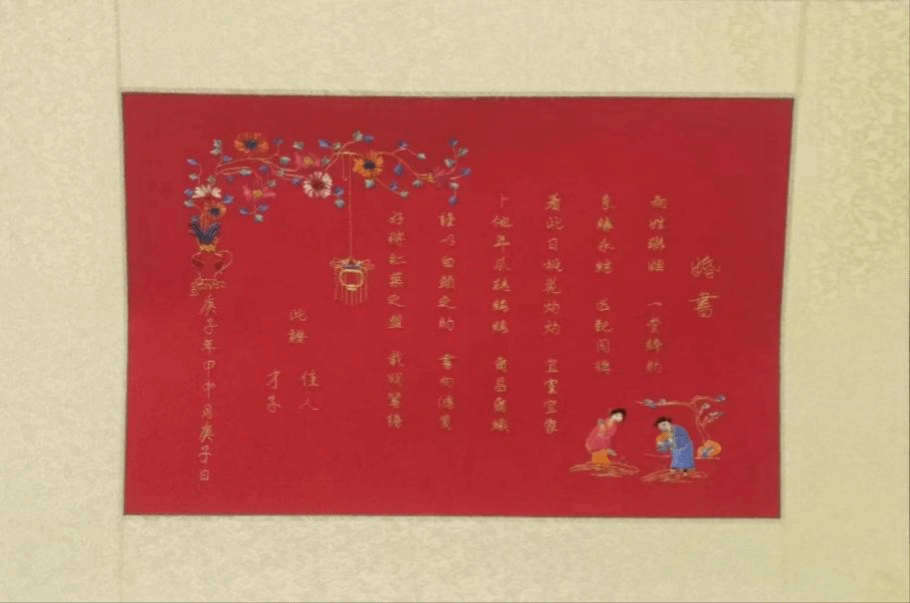 婚書
兩姓聯姻 一堂締約
良緣永結 匹配同稱
看此日桃花灼灼 宜室宜家
卜他年瓜瓞綿綿 爾昌爾熾
謹以白頭之約 書向鴻箋
好將紅葉之盟 載明鴛譜
此證
佳人
才子
庚子年甲申月庚子日